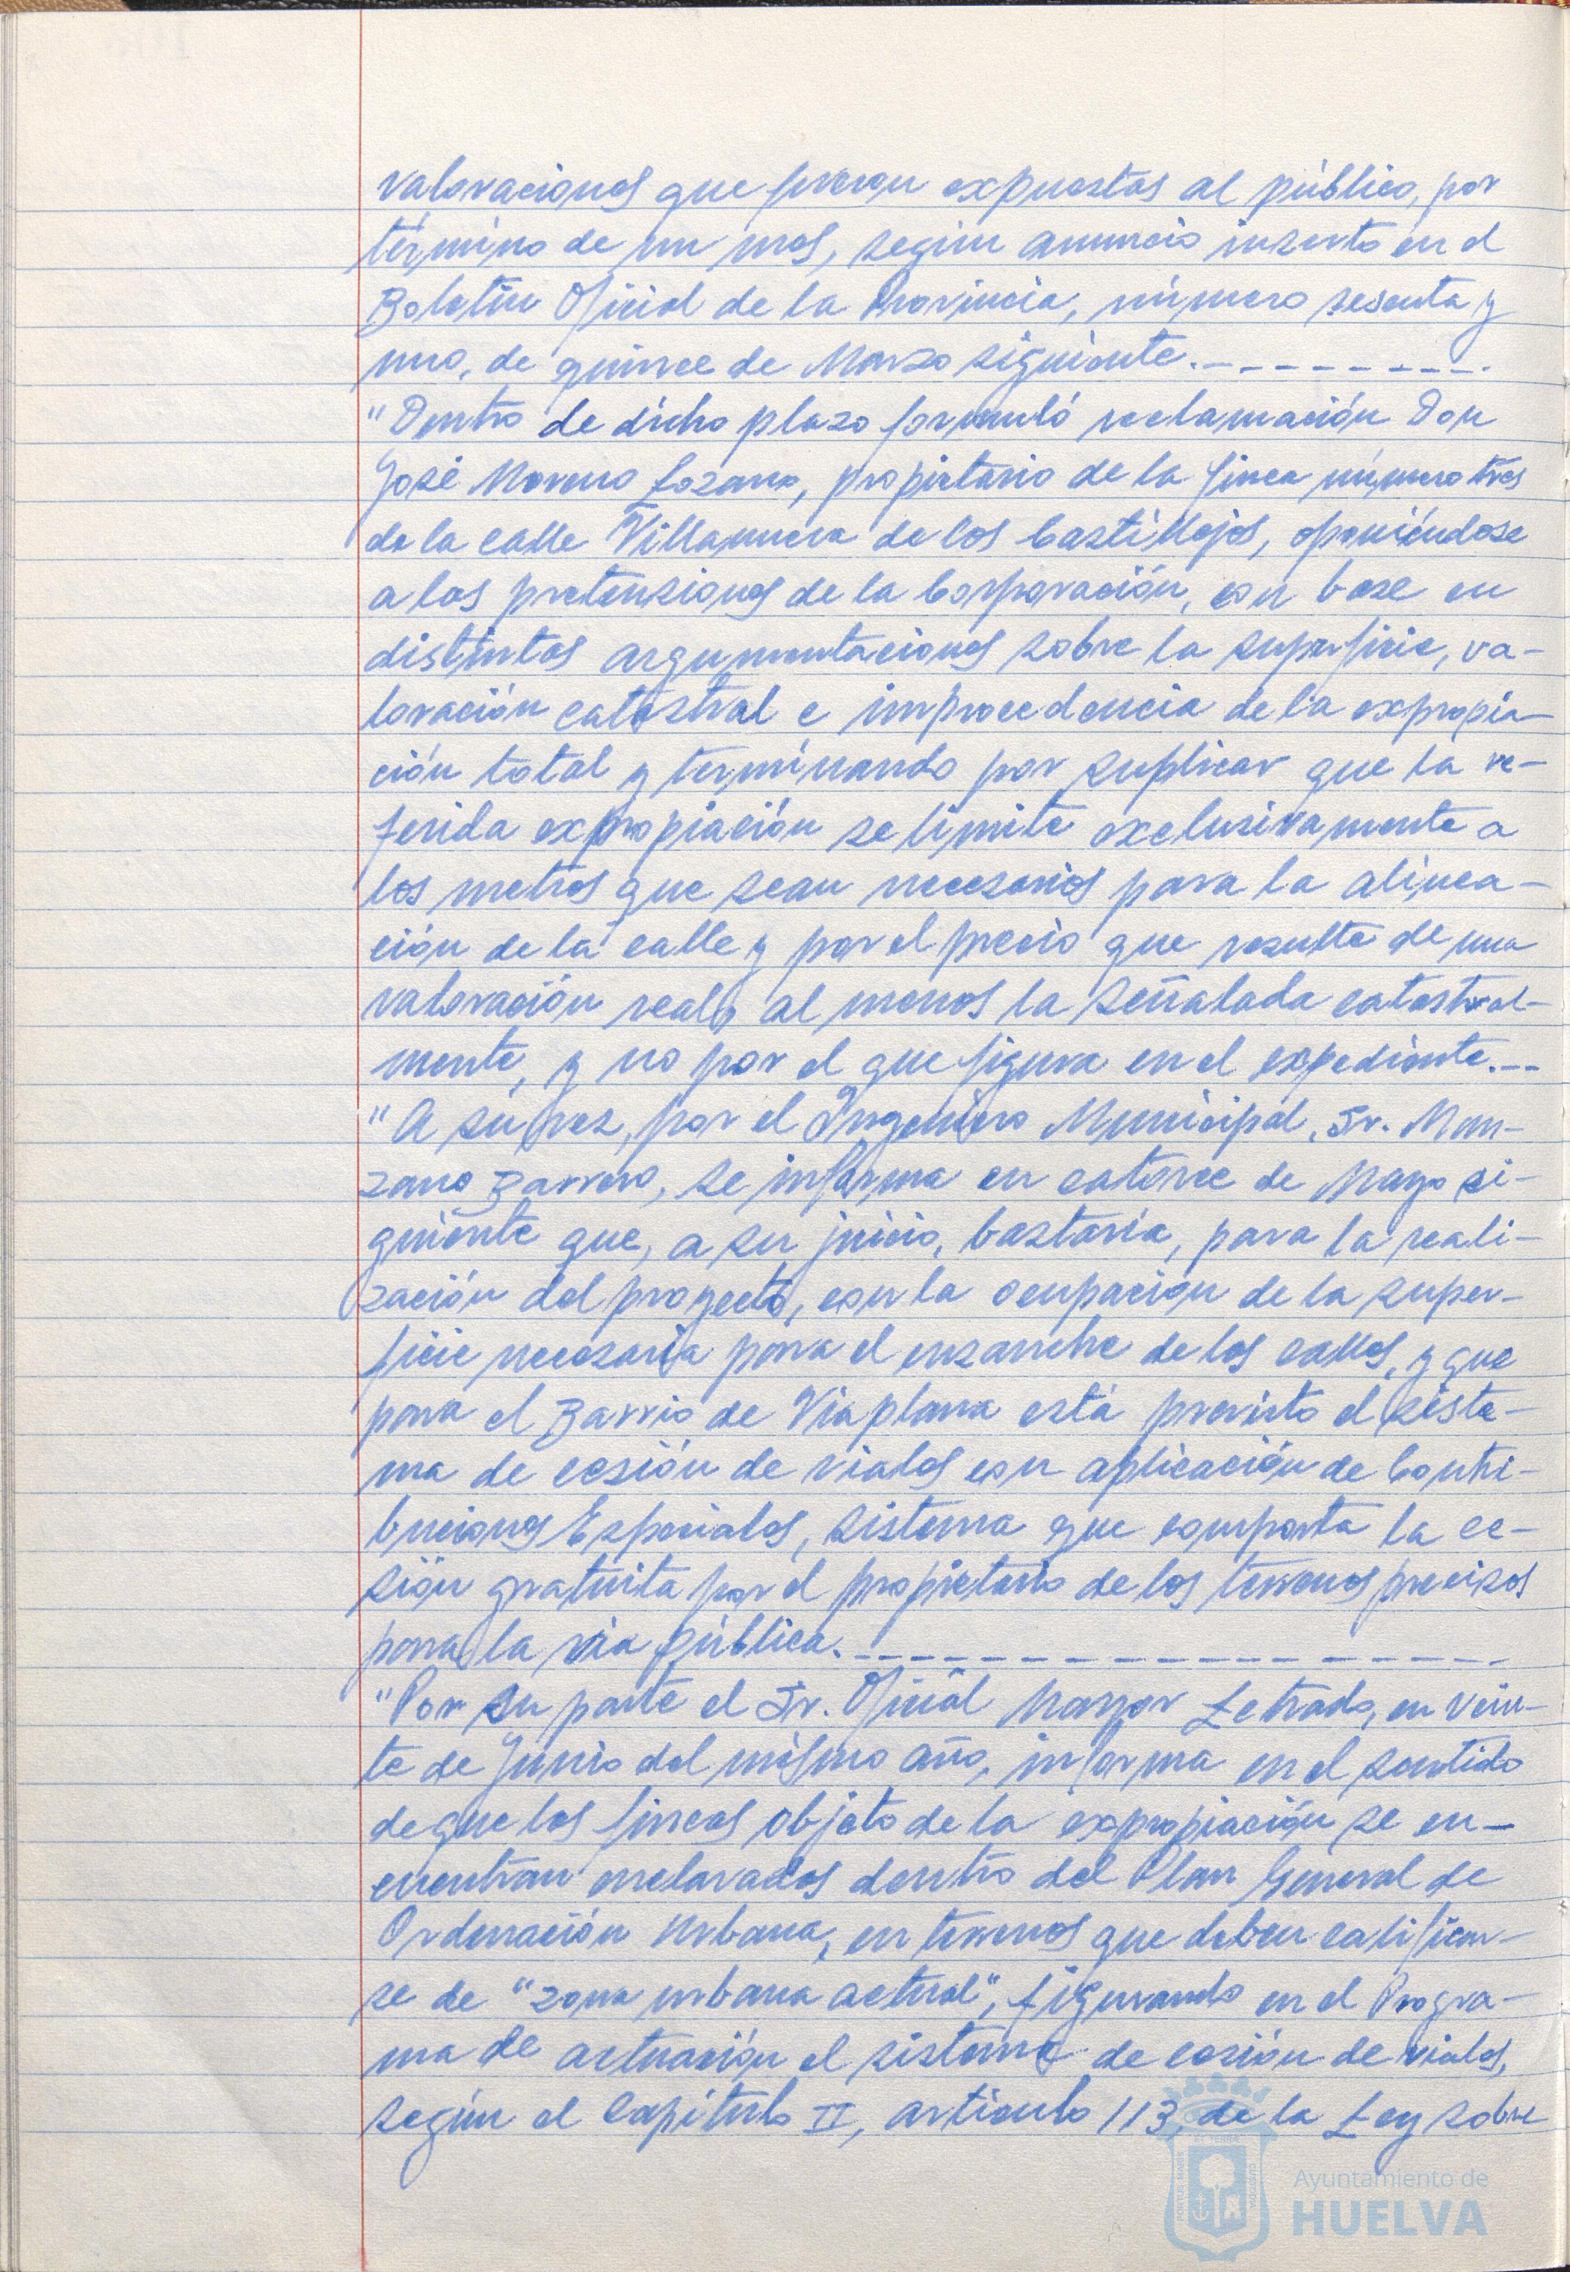 valoraciones que fueron expuestas al público, por
término de un mes, según anuncio inserto en el
Boletín Oficial de la Provincia, número sesenta y
uno, de quince de Marzo siguiente.---------.
"Dentro de dicho plazo formuló reclamación Don
José Moreno Lozano, propietario de la finca número tres
de la calle Villanueva de los Castillejos, oponiéndose
a las pretensiones de la Corporación, con base en
distintas argumentaciones sobre la superficie, va-
loración catastral e improcedencia de la expropia-
ción total y terminando por suplicar que la re-
ferida expropiación se limite exclusivamente a
los metros que sean necesarios para la alinea-
ción de la calle y por el precio que resulte de una
valoración real, al menos la señalada catastral-
mente, y no por el que figura en el expediente.---
"A su vez, por el Ingeniero Municipal, Sr. Man-
zano Barrero, se informa en catorce de Mayo si-
guiente que, a su juicio, bastaría, para la reali-
zación del proyecto, con la ocupación de la super-
ficie necesaria para el ensanche de las calles, y que
para el Barrio de Viaplana está previsto el siste-
ma de cesión de viales con aplicación de Contri-
buciones Especiales, sistema que comporta la ce-
sión gratuita por el propietario de los terrenos precisos
para la vía pública.--------------
"Por su parte el Sr. Oficial Mayor Letrado, en vein-
te de Junio del mismo año, informa en el sentido
de que las fincas objeto de la expropiación se en-
cuentran enclavadas dentro del Plan General de
Ordenación Urbana, en terrenos que deben calificar-
se de "zona urbana actual", figurando en el Progra-
ma de actuación el sistema de cesión de viales,
según el Capítulo II, artículo 113, de la Ley sobre
Ayuntamiento de
HUELVA